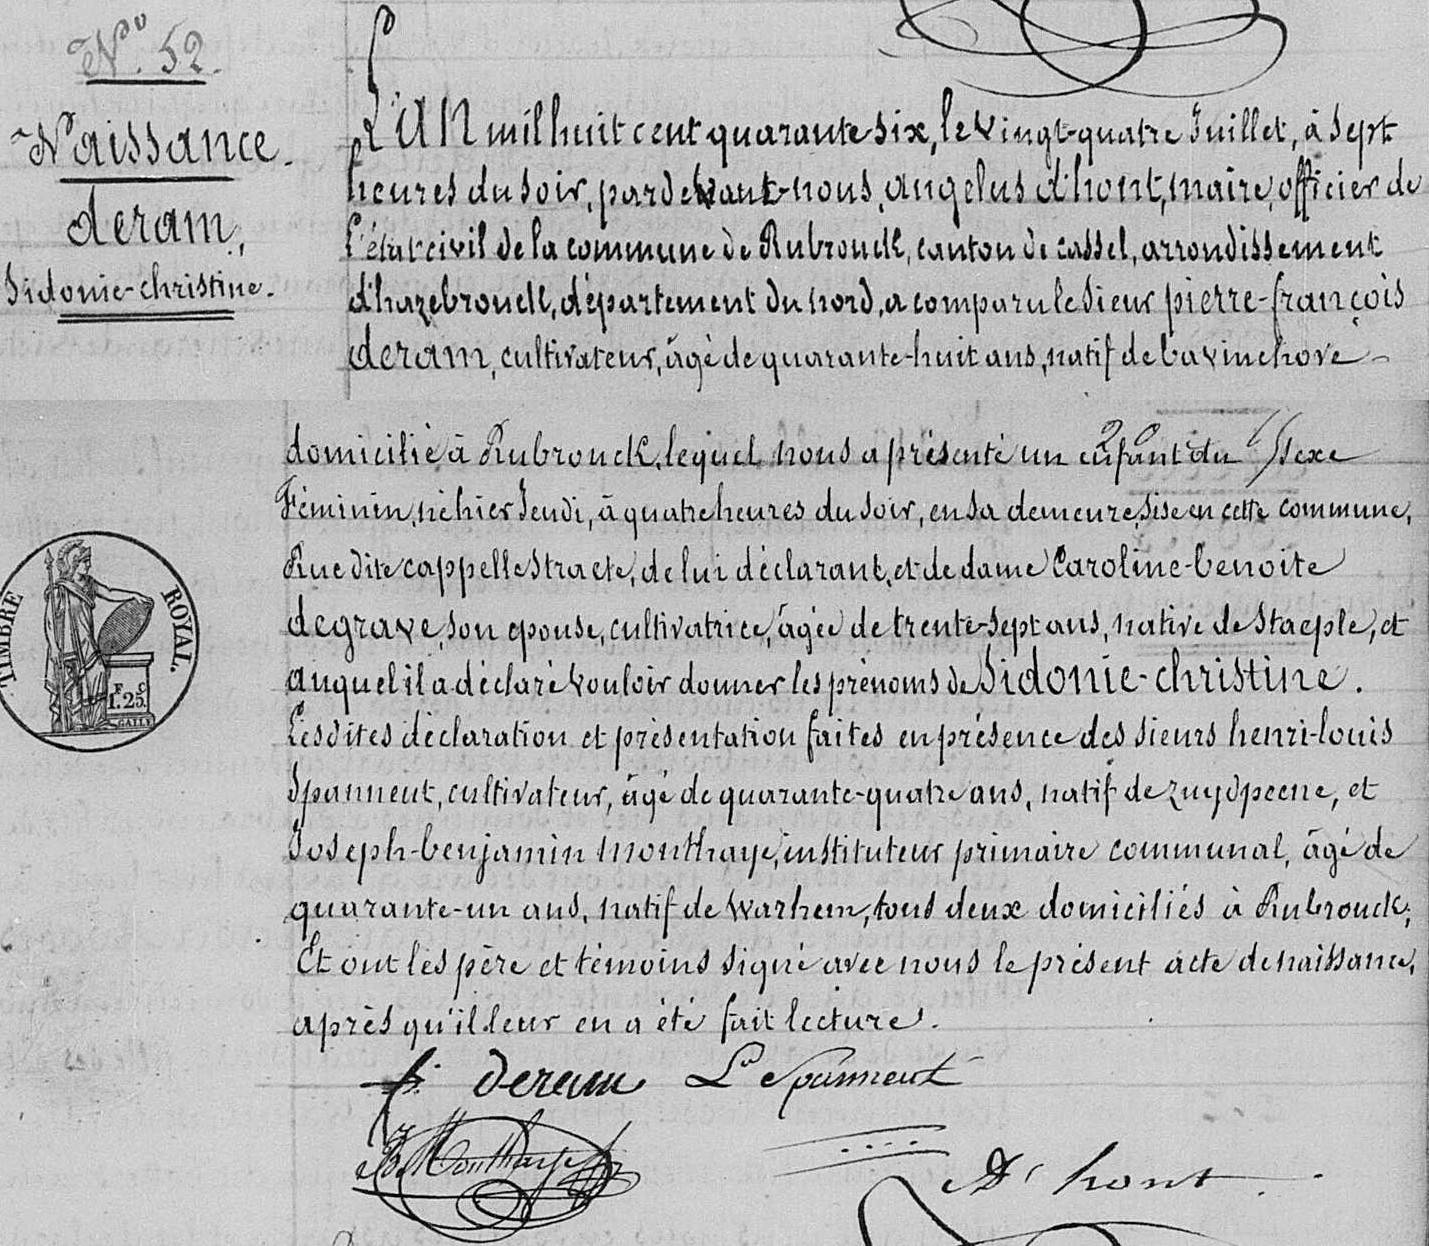 N.º 52.
Naissance.
deram,
Sidonie-christine.
L'an mil huit cent quarante-six, le vingt-quatre Juillet, à sept
heures du soir, pardevant-nous, angelus d'hont, maire, officier de
l'état civil de la commune de Rubrouck, canton de cassel, arrondissement
d'hazebrouck, département du nord, a comparu le sieur pierre-françois
deram, cultivateur, âgé de quarante-huit ans, natif de bavinchove
domicilié à Rubrouck, lequel nous a présenté un enfant du sexe
Féminin, né hier Jeudi, à quatre heures du soir, en sa demeure, sise en cette commune,
Rue dite cappelle straete, de lui déclarant, et de dame Caroline-benoite
degrave, son epouse, cultivatrice, âgée de trente-sept ans, native de Staeple, et
auquel il a déclaré vouloir donner les prénoms de Sidonie-christine.
Lesdites déclaration et présentation faites en présence des sieurs henri-louis
Spanneut, cultivateur, âgé de quarante-quatre ans, natif de zuydpeene, et
Joseph-benjamin monthaye, instituteur primaire communal, âgé de
quarante-un ans, natif de warhem, tous deux domiciliés à Rubrouck;
Et ont les père et témoins signé avec nous le présent acte de naissance,
après qu'il leur en a été fait lecture.
TIMBRE ROYAL.
F. C.
1. 25.
GALLE
p. deram L.s Spanneut
J.B. Monthaye
A D'hont.